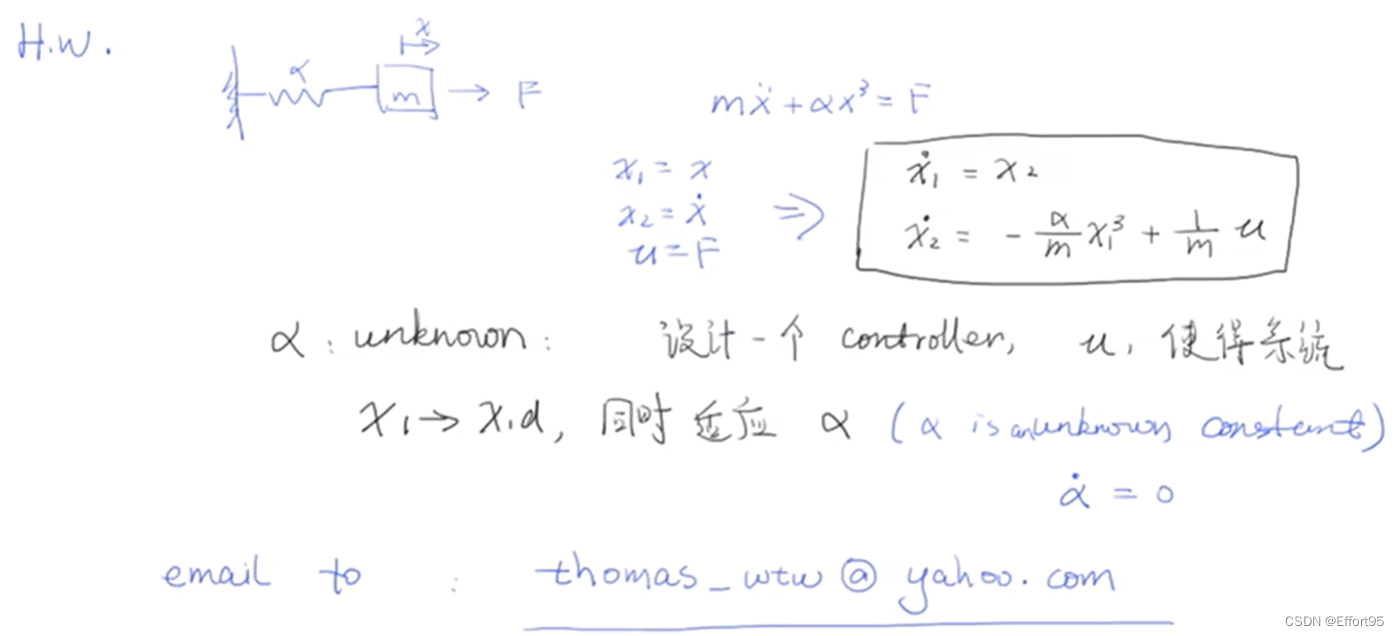 H.W.
x
α
m → F
mẍ + αx³ = F
x₁ = x
x₂ = ẋ
u = F
⇒
ẋ₁ = x₂
ẋ₂ = - α/m x₁³ + 1/m u
α : unknown : 设计一个 controller, u, 使得系统
x₁ → x₁d, 同时适应 α (α is an unknown constant)
α̇ = 0
email to : thomas_wtw@yahoo.com
CSDN @Effort95